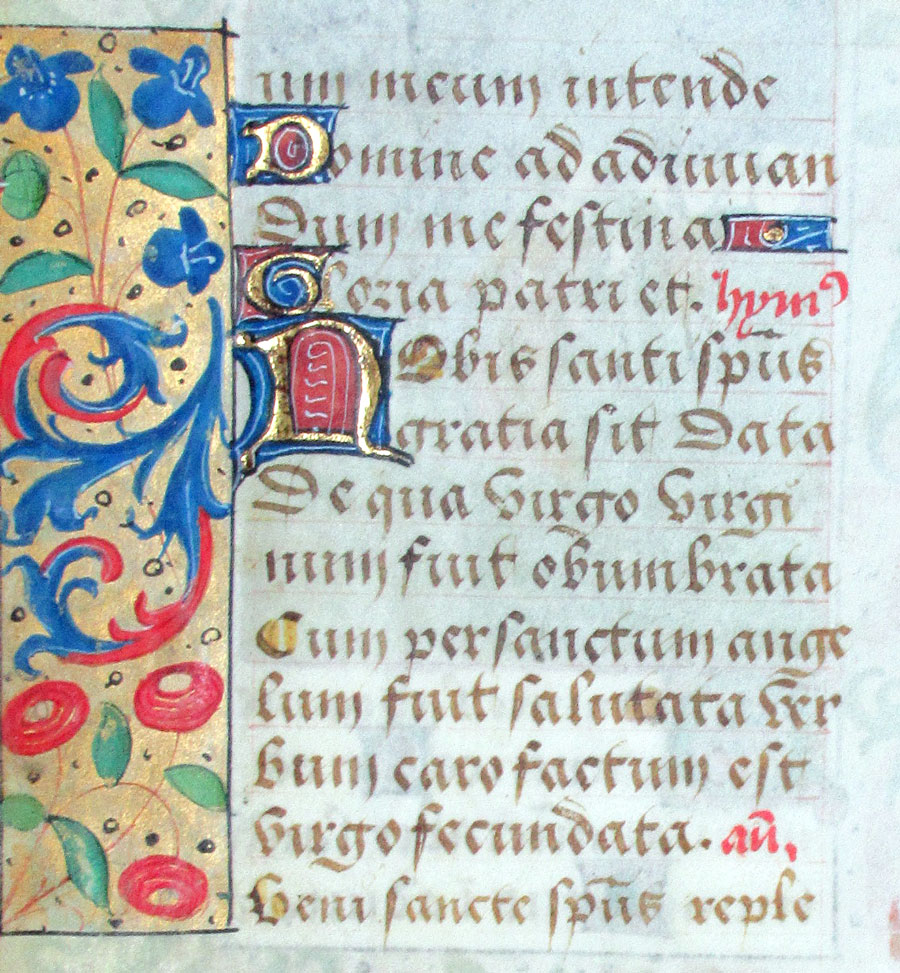 ium meum intende
Domine ad adiuuan
Dum me festina
Gloria patri et. hymꝰ
Nobis santi sp̄us
gratia sit Data
De qua virgo virgi
num fuit obumbrata
Cum per sanctum ange
lum fuit salutata ver
bum caro factum est
virgo fecundata. an̄.
Veni sancte sp̄us reple